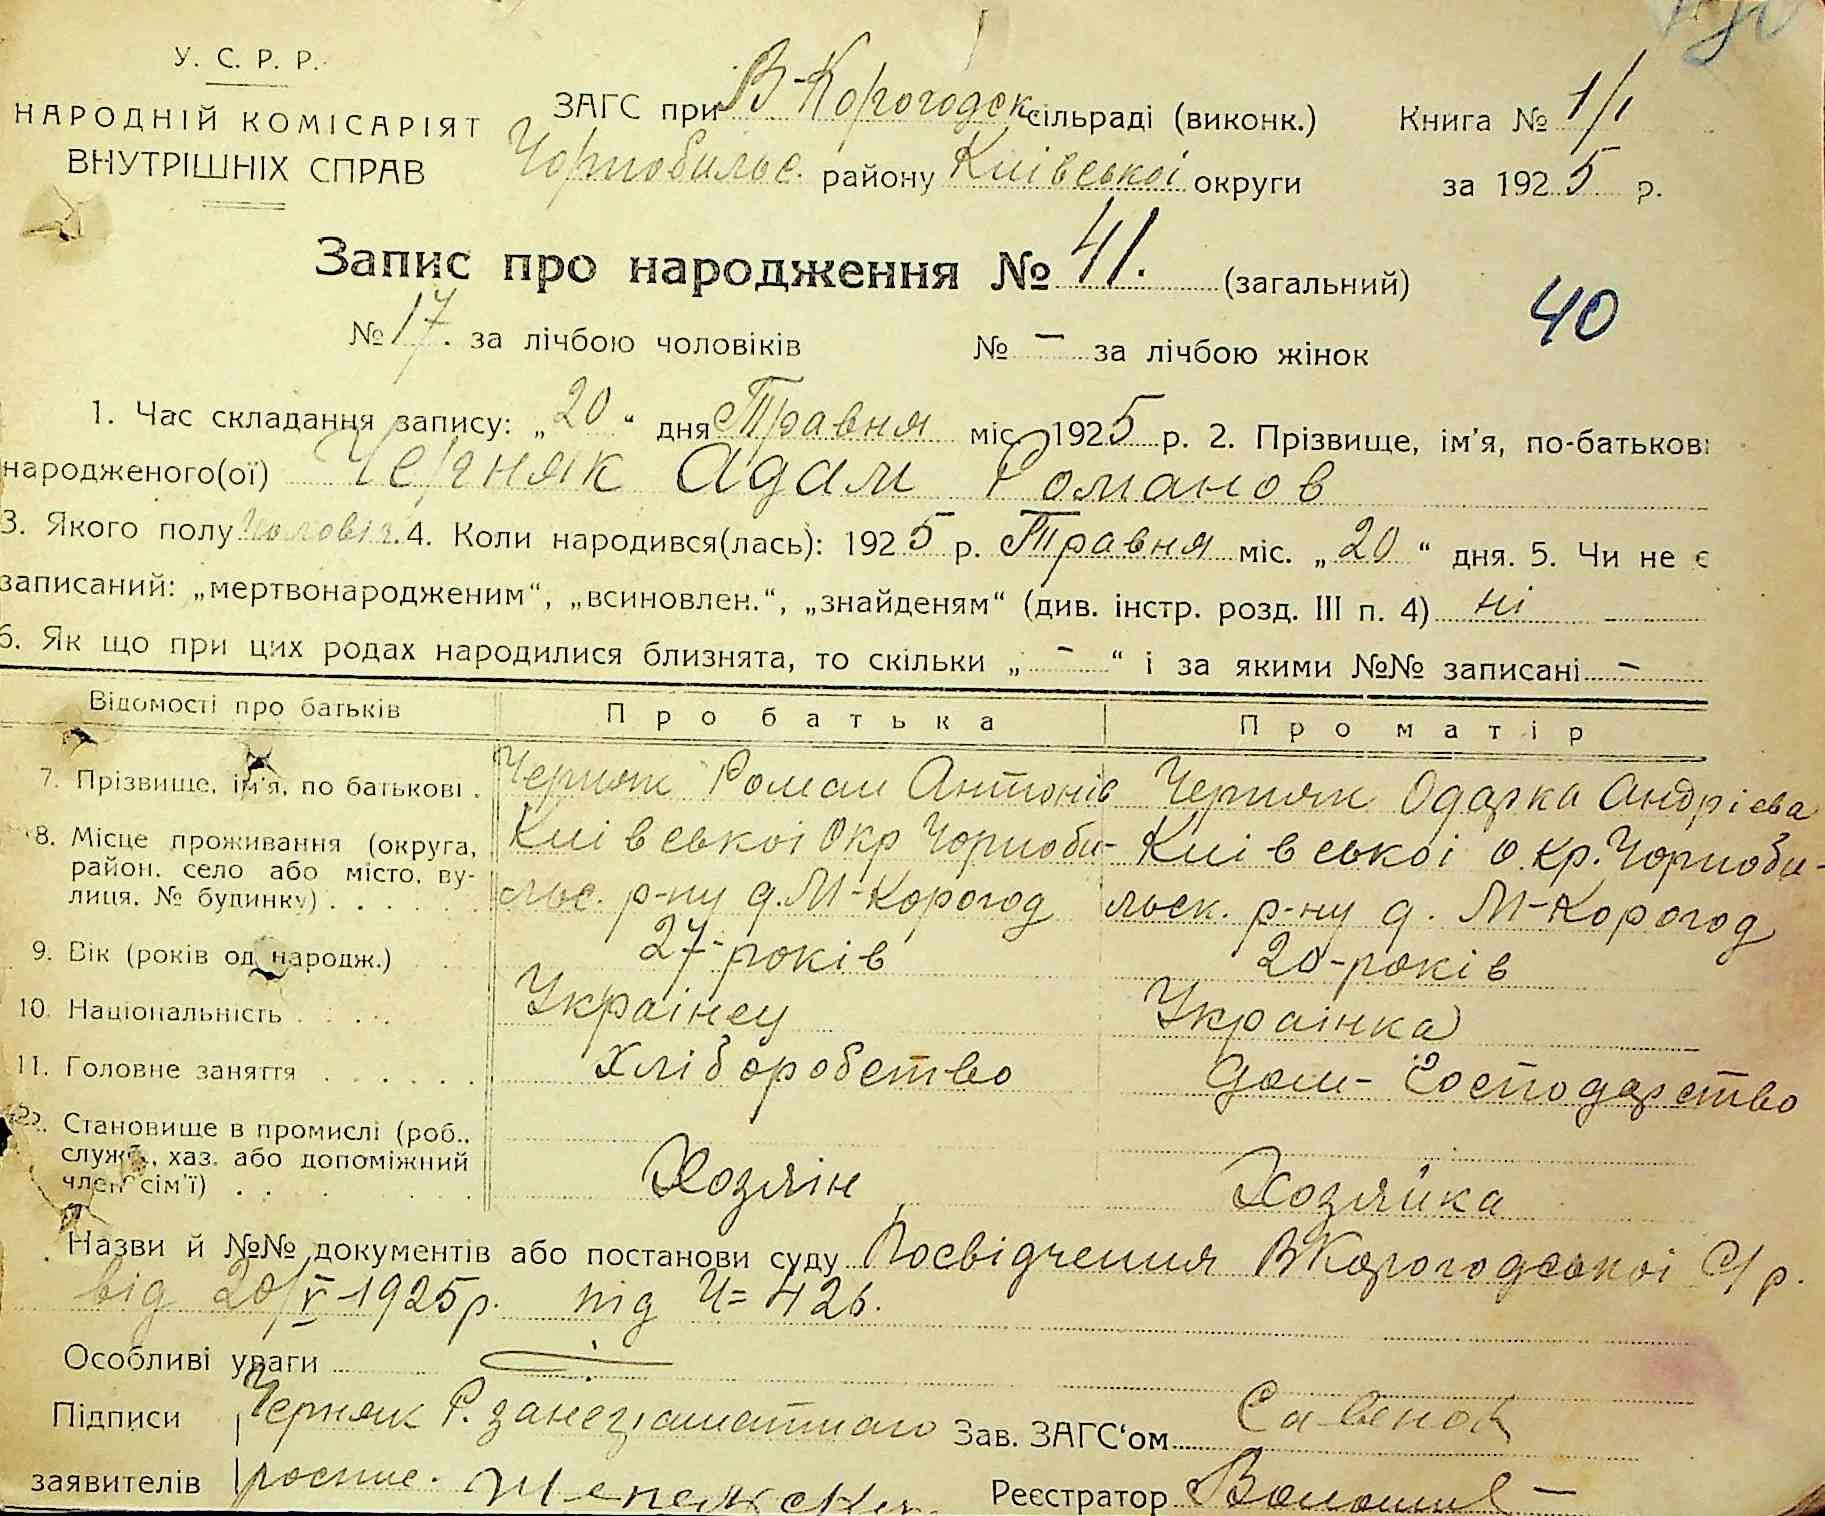 У. С. Р. Р.
НАРОДНІЙ КОМІСАРІЯТ
ВНУТРІШНІХ СПРАВ
ЗАГС при В-Корогодск сільраді (виконк.) Книга № 1/1
Чорнобильс. району Київської округи за 1925 р.
Запис про народження № 41. (загальний)
40
№ 17. за лічбою чоловіків № — за лічбою жінок
1. Час складання запису: „20“ дня Травня міс. 1925 р. 2. Прізвище, ім'я, по-батькові
народженого(ої) Черняк Адам Романов
3. Якого полу чоловіч. 4. Коли народився(лась): 1925 р. Травня міс. „20“ дня. 5. Чи не є
записаний: „мертвонародженим“, „всиновлен.“, „знайденям“ (див. інстр. розд. III п. 4) ні
6. Як що при цих родах народилися близнята, то скільки „—“ і за якими №№ записані —
Відомості про батьків Про батька Про матір
7. Прізвище, ім'я, по батькові. Черняк Роман Антонів Черняк Одарка Андрієва
8. Місце проживання (округа, район, село або місто, вулиця, № будинку) Київської Окр Чорноби- Київської окр. Чорноби-
льс. р-ну д. М-Корогод льск. р-ну д. М-Корогод
9. Вік (років од народж.) 27-років 20-років
10. Національність Українец Українка
11. Головне заняття Хліборобство Дом-Господарство
12. Становище в промислі (роб., служб., хаз. або допоміжний член сім'ї) Хозяін Хозяйка
Назви й №№ документів або постанови суду Посвідчення ВКорогодської С/р.
від 20/V-1925р. під Ч= 426.
Особливі уваги
Підписи Черняк Р. за Зав. ЗАГС'ом Савенок
заявителів роспис. Реєстратор